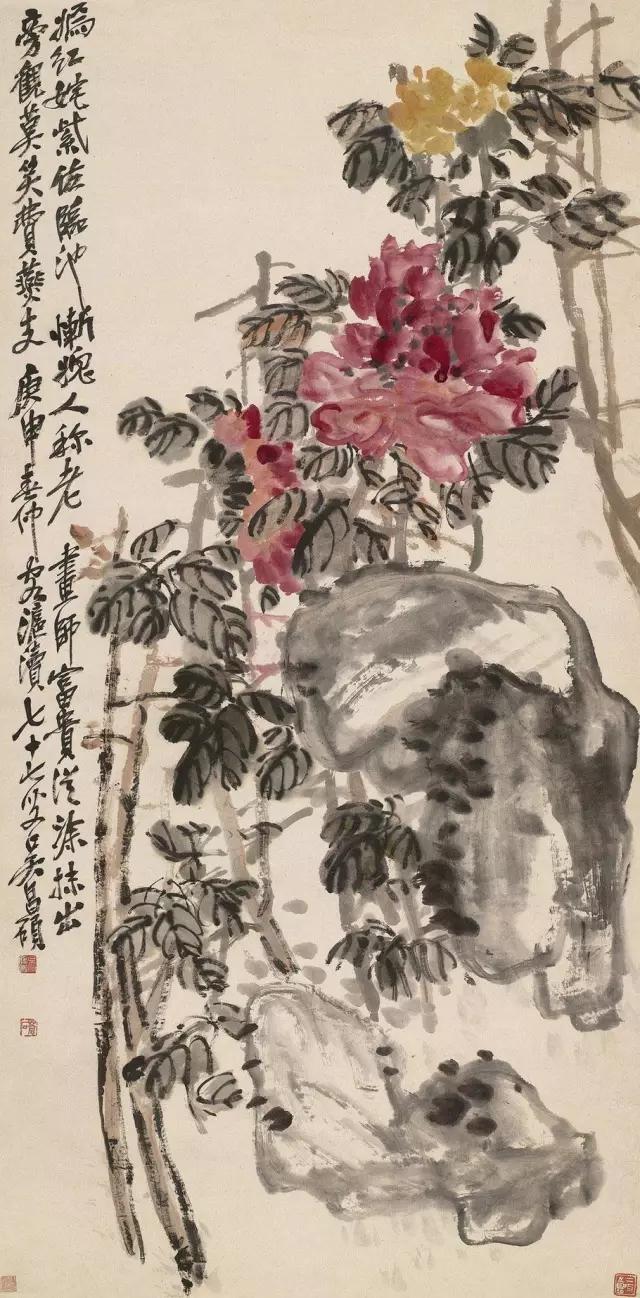 嫣紅姹紫倣臨池慚媿人称老畫師富貴從涂抹出
旁觀莫笑費燕支庚申春仲客滬瀆七十七叟吳昌碩